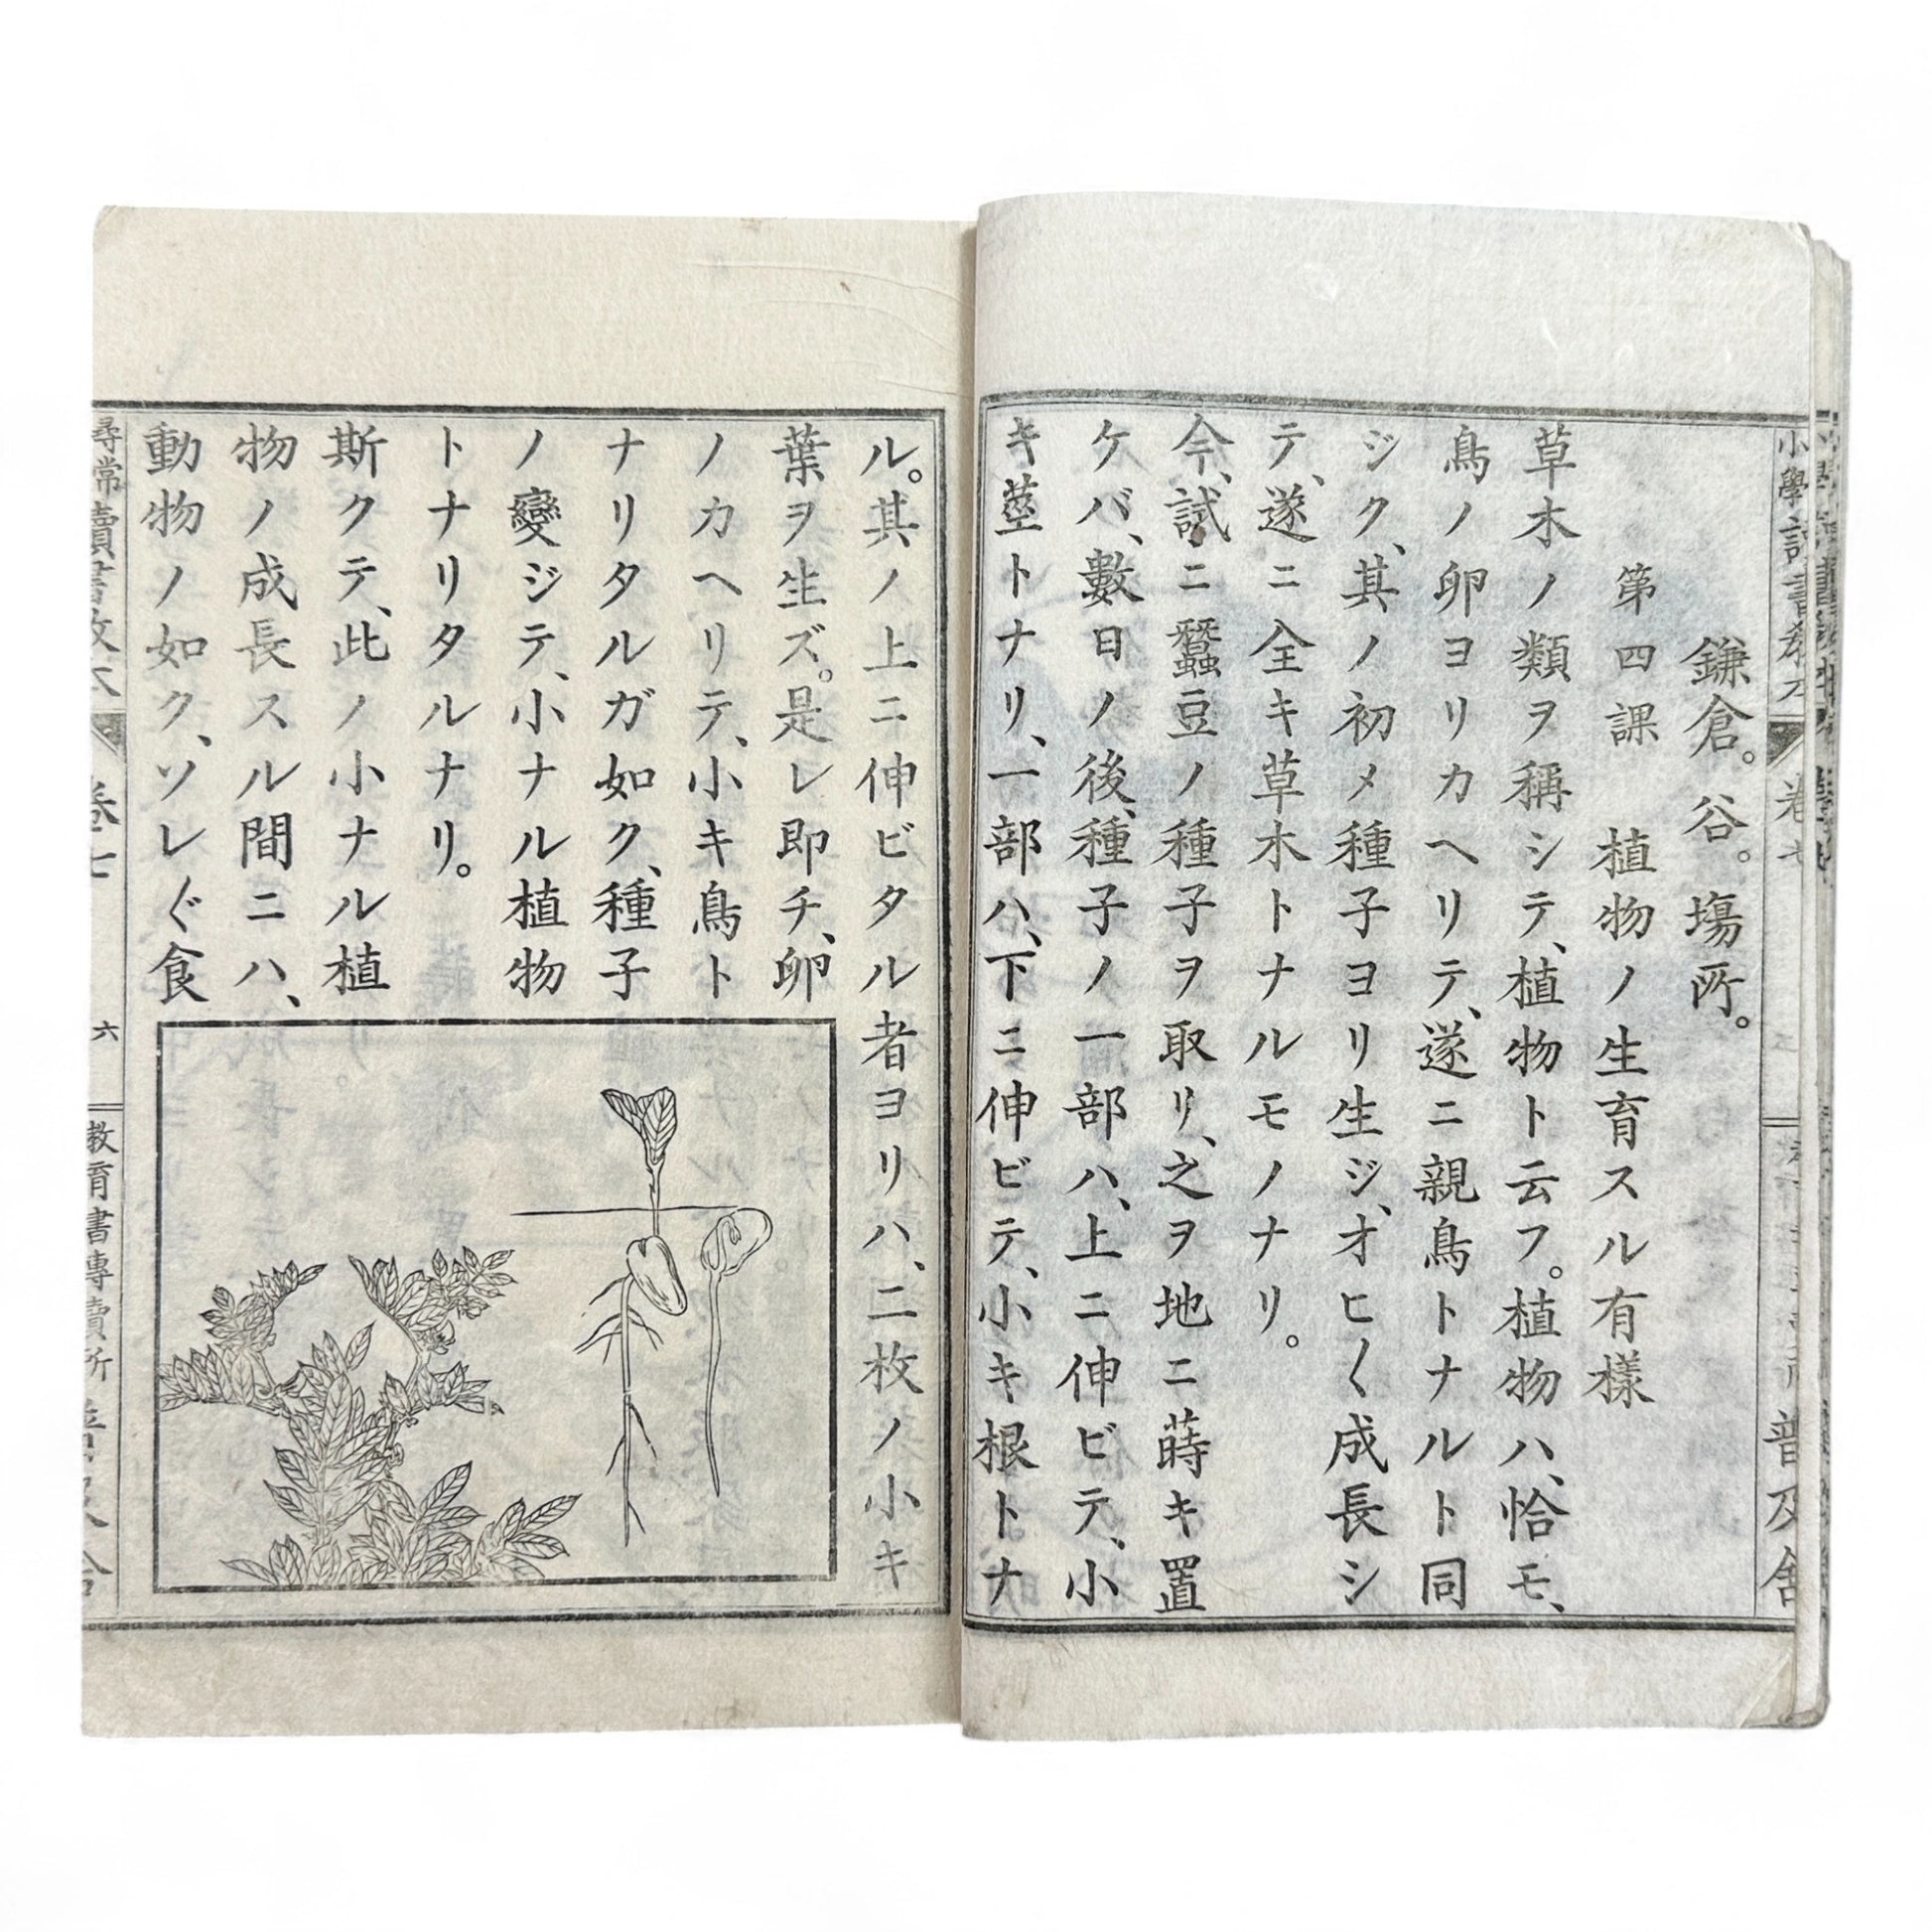 鎌倉。谷。塲所。
第四課　植物ノ生育スル有樣
草木ノ類ヲ稱シテ、植物ト云フ。植物ハ、恰モ、
鳥ノ卵ヨリカヘリテ、遂ニ親鳥トナルト同
ジク、其ノ初メ種子ヨリ生ジ、オヒ〱成長シ
テ、遂ニ全キ草木トナルモノナリ。
今、試ニ蠶豆ノ種子ヲ取リ、之ヲ地ニ蒔キ置
ケバ、數日ノ後、種子ノ一部ハ、上ニ伸ビテ、小
キ莖トナリ、一部ハ、下ニ伸ビテ、小キ根トナ
ル。其ノ上ニ伸ビタル者ヨリハ、二枚ノ小キ
葉ヲ生ズ。是レ即チ、卵
ノカヘリテ、小キ鳥ト
ナリタルガ如ク、種子
ノ變ジテ、小ナル植物
トナリタルナリ。
斯クテ、此ノ小ナル植
物ノ成長スル間ニハ、
動物ノ如ク、ソレ〲食
尋常讀書敎本
卷七
六
敎育書專賣所